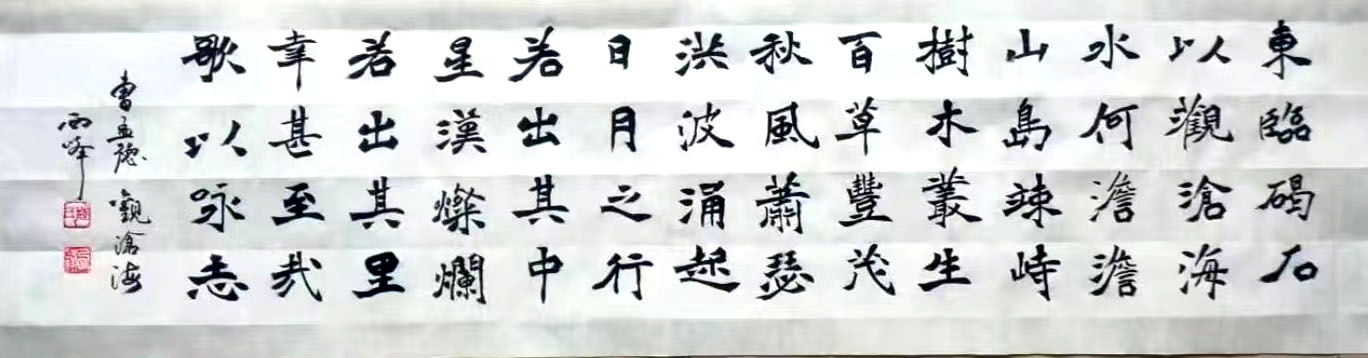 東臨碣石
以觀滄海
水何澹澹
山島竦峙
樹木叢生
百草豐茂
秋風蕭瑟
洪波涌起
日月之行
若出其中
星漢燦爛
若出其里
幸甚至哉
歌以咏志
曹孟德觀滄海